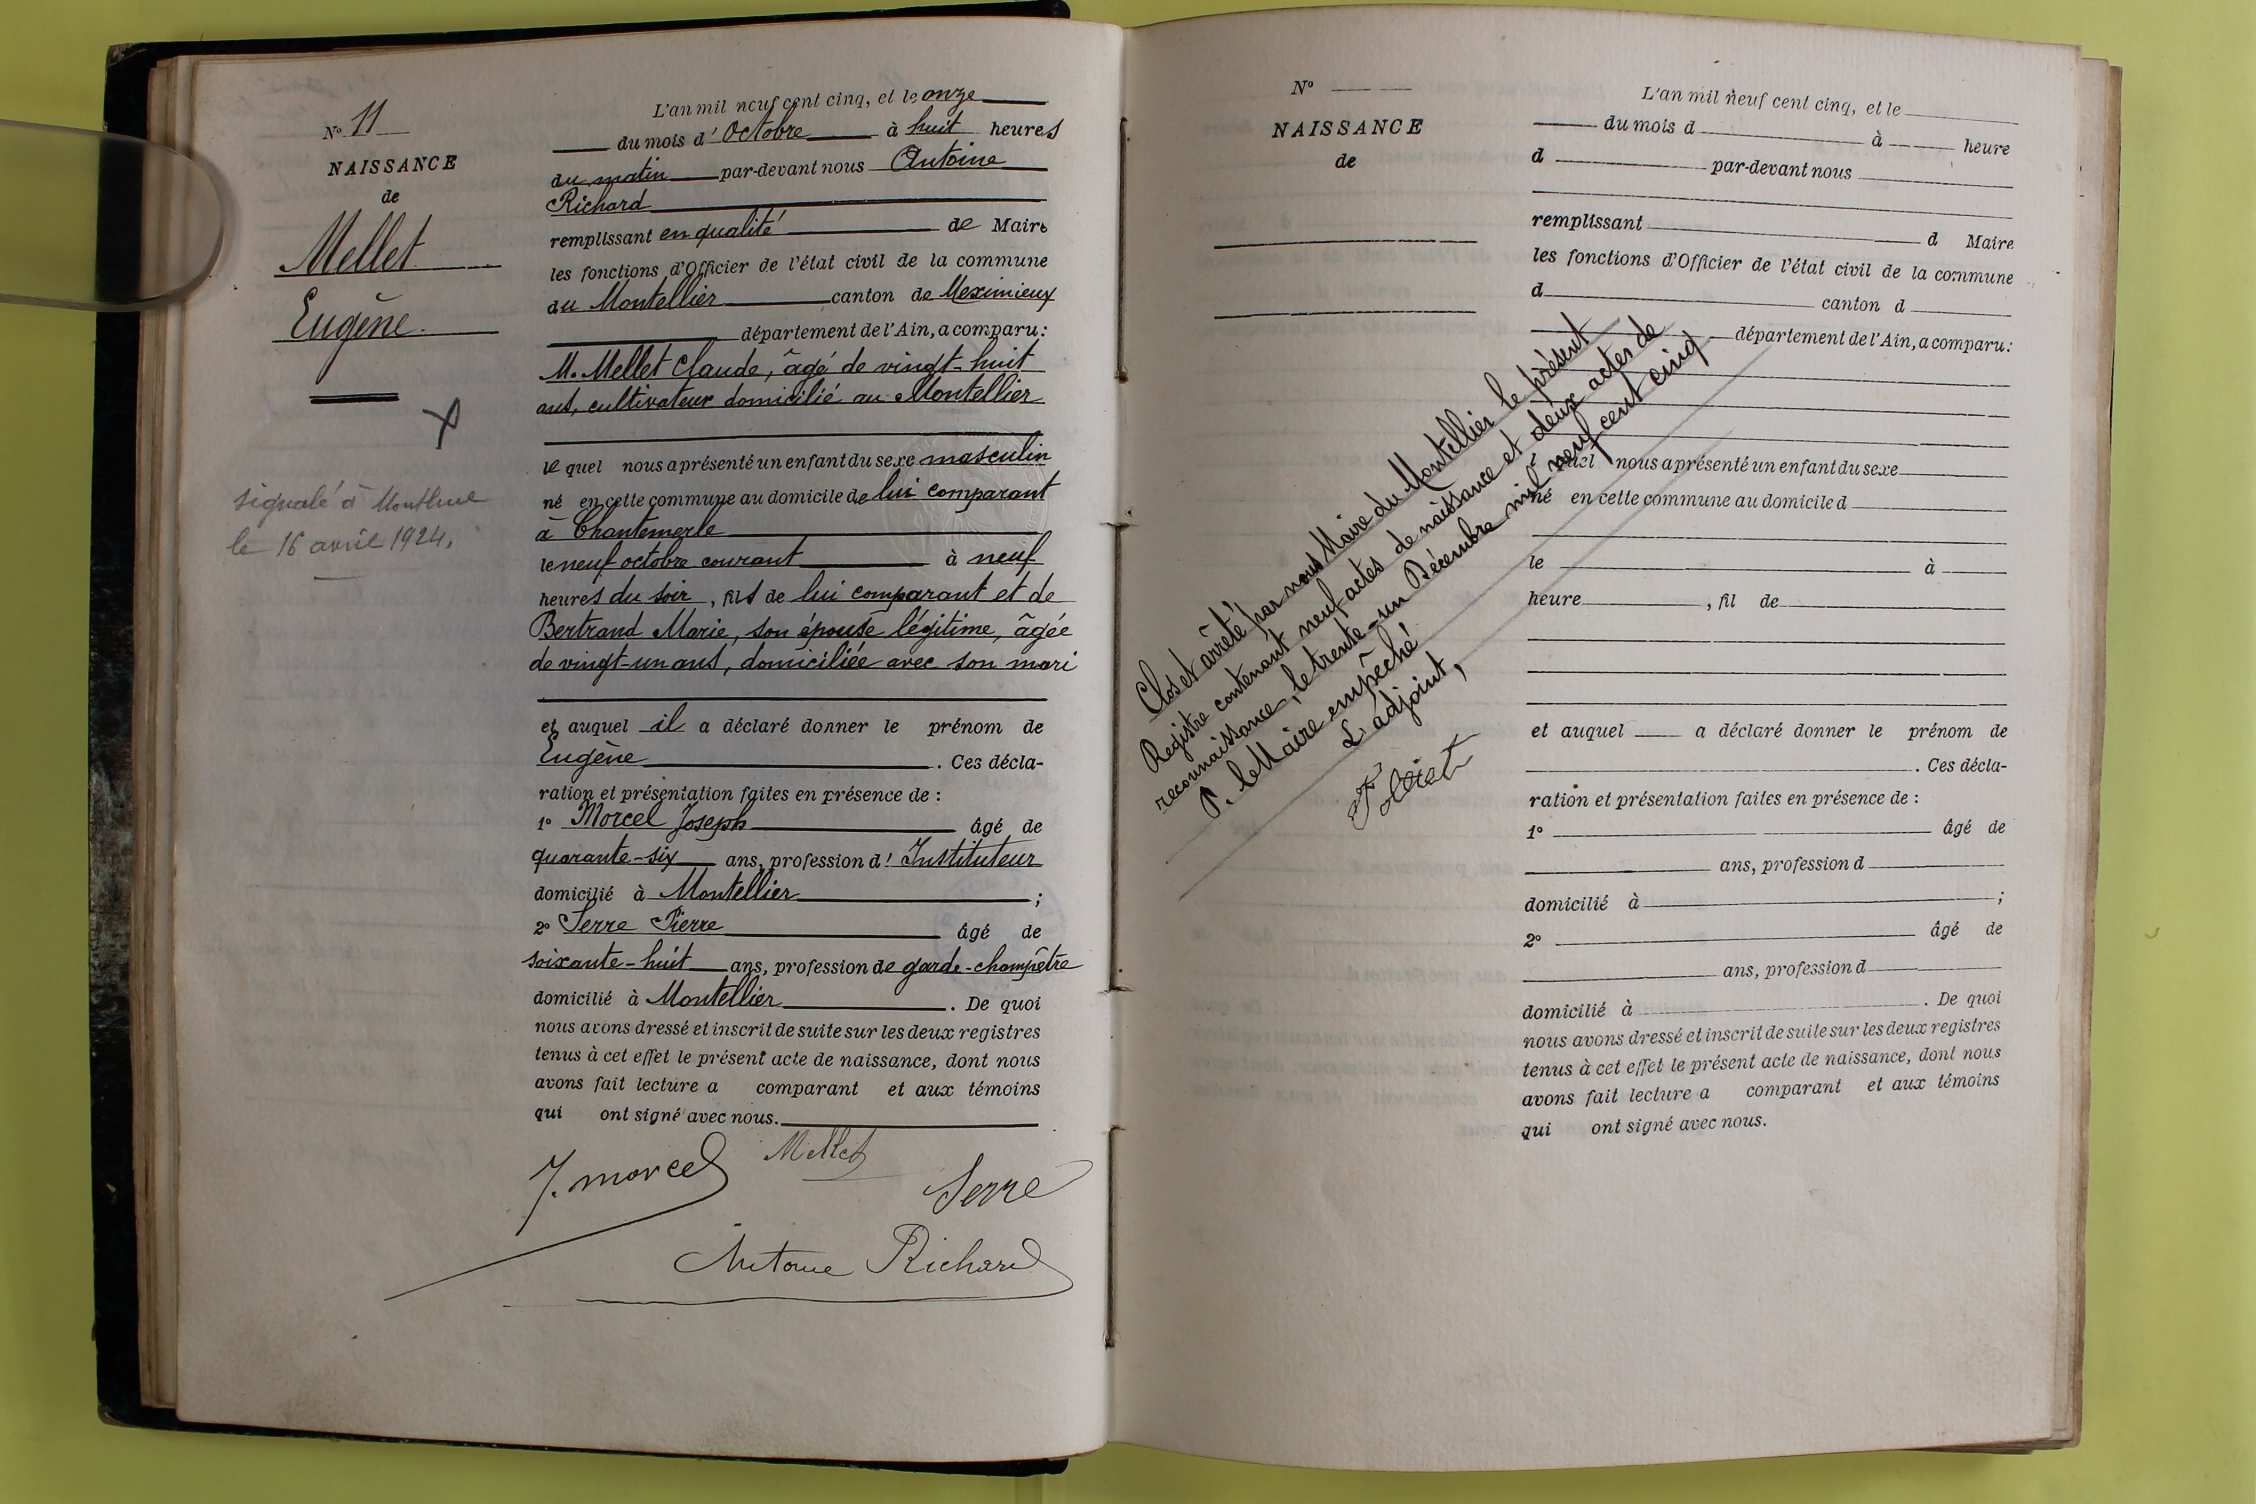 Nº 11
NAISSANCE
de
Mellet
Eugène.
signalé à Montluel
le 16 avril 1924.
L'an mil neuf cent cinq, et le onze
du mois d'Octobre à huit heures
du matin par-devant nous Antoine
Richard
remplissant en qualité de Maire
les fonctions d'Officier de l'état civil de la commune
du Montellier canton de Meximieux
département de l'Ain, a comparu:
M. Mellet Claude, âgé de vingt-huit
ans, cultivateur domicilié au Montellier
le quel nous a présenté un enfant du sexe masculin
né en cette commune au domicile de lui comparant
à Chantemerle
le neuf octobre courant à neuf
heures du soir, fils de lui comparant et de
Bertrand Marie, son épouse légitime, âgée
de vingt-un ans, domiciliée avec son mari
et auquel il a déclaré donner le prénom de
Eugène. Ces décla-
ration et présentation faites en présence de:
1º Morcel Joseph âgé de
quarante-six ans, profession d'Instituteur
domicilié à Montellier;
2º Serre Pierre âgé de
soixante-huit ans, profession de garde-champêtre
domicilié à Montellier. De quoi
nous avons dressé et inscrit de suite sur les deux registres
tenus à cet effet le présent acte de naissance, dont nous
avons fait lecture a comparant et aux témoins
qui ont signé avec nous.
J. Morcel Mellet
Serre
Antoine Richard
Nº
NAISSANCE
de
L'an mil neuf cent cinq, et le
du mois d à heure
d par-devant nous
remplissant d Maire
les fonctions d'Officier de l'état civil de la commune
d canton d
département de l'Ain, a comparu:
quel nous a présenté un enfant du sexe
né en cette commune au domicile d
le à
heure, fil de
et auquel a déclaré donner le prénom de
. Ces décla-
ration et présentation faites en présence de:
1º âgé de
ans, profession d
domicilié à ;
2º âgé de
ans, profession d
domicilié à . De quoi
nous avons dressé et inscrit de suite sur les deux registres
tenus à cet effet le présent acte de naissance, dont nous
avons fait lecture a comparant et aux témoins
qui ont signé avec nous.
Clos et arrêté par nous Maire du Montellier le présent
Registre contenant neuf actes de naissance et deux actes de
reconnaissance, le trente-un Décembre mil neuf cent cinq
P. le Maire empêché
L'adjoint,